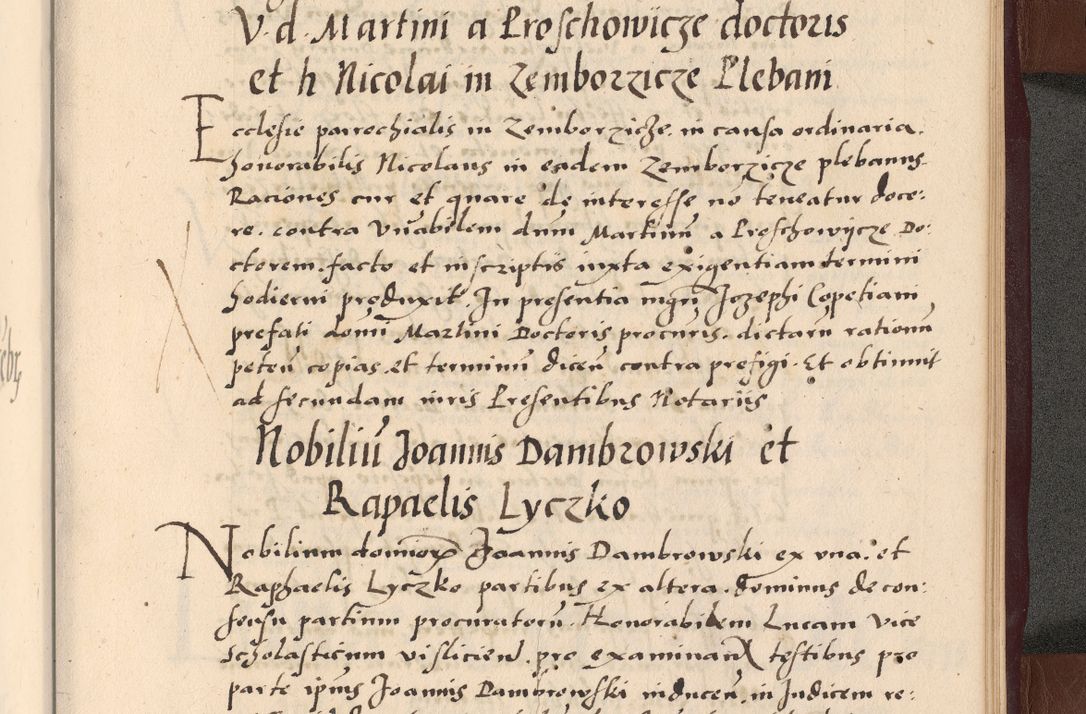 V. d. Martini a Proschowicze doctoris
et h Nicolai in Zemborzicze Plebani
Ecclesie parrochialis in Zemborzicze. in causa ordinaria.
honorabilis Nicolaus in eadem Zemborzicze plebanus
Raciones cur et quare de interesse nō teneatur doce:
re. contra Vnabilem dnm Martinū a Proschowycze Do:
ctorem. facto et inscriptis iuxta exigentiam termini
hodierni produxit. In presentia mgri Jozephi Copetiani
prefati domi Martini Doctoris procuris. dictarū rationū
peteñ copias. et terminū diceñ contra prefigi. Et obtinuit
ad secundam iuris Presentibus Notariis
Nobiliū Joannis Dambrowski et
Rapaelis Lyczko
Nobilium domnoꝝ Joannis Dambrowski ex vna. et
Raphaelis Lyczko partibus ex altera. dominus de con:
sensu partium procuratorū. Honorabilem Lucam Vice
Scholasticum visliciend. pro examinand testibus pro
parte ipius Joannis Dambrowski inducen. in Judicem re: